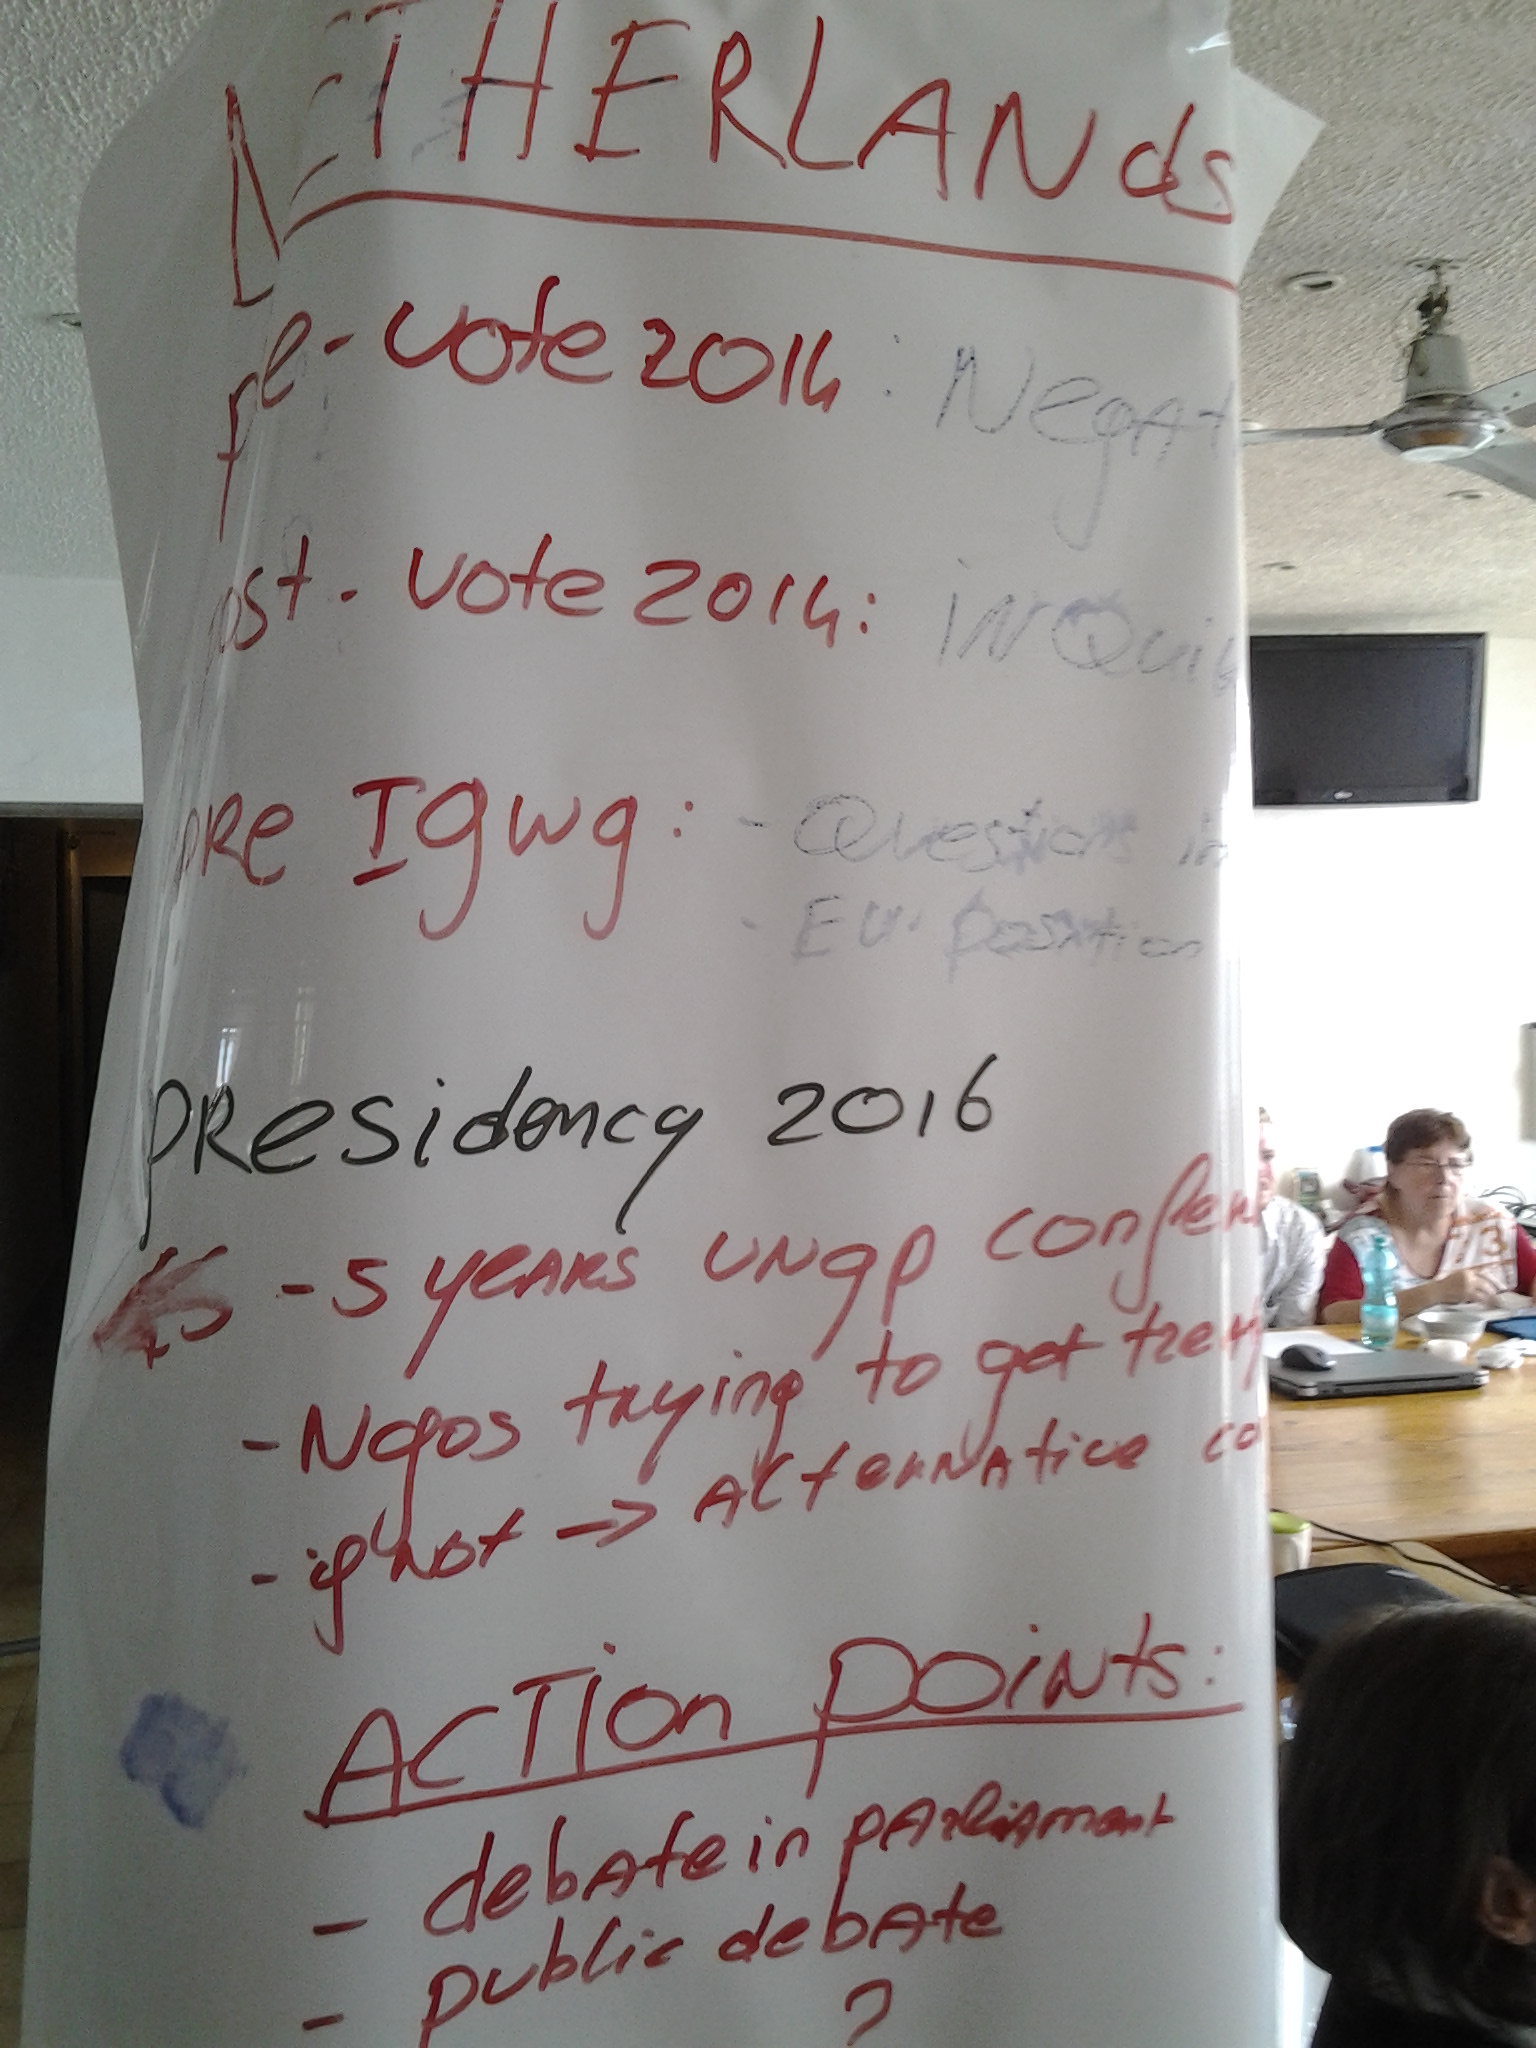 NETHERLANds
pre-vote 2014: Negat
ost-vote 2014: iNQui
pRe Igwg: - Questions in
- EU. position
pResidency 2016
- 5 yeARs UNgp confer
- Ngos trying to get treaty
- if not → AlternAtive co
ACTion points:
- debAte in pArliAment
- public debAte
?